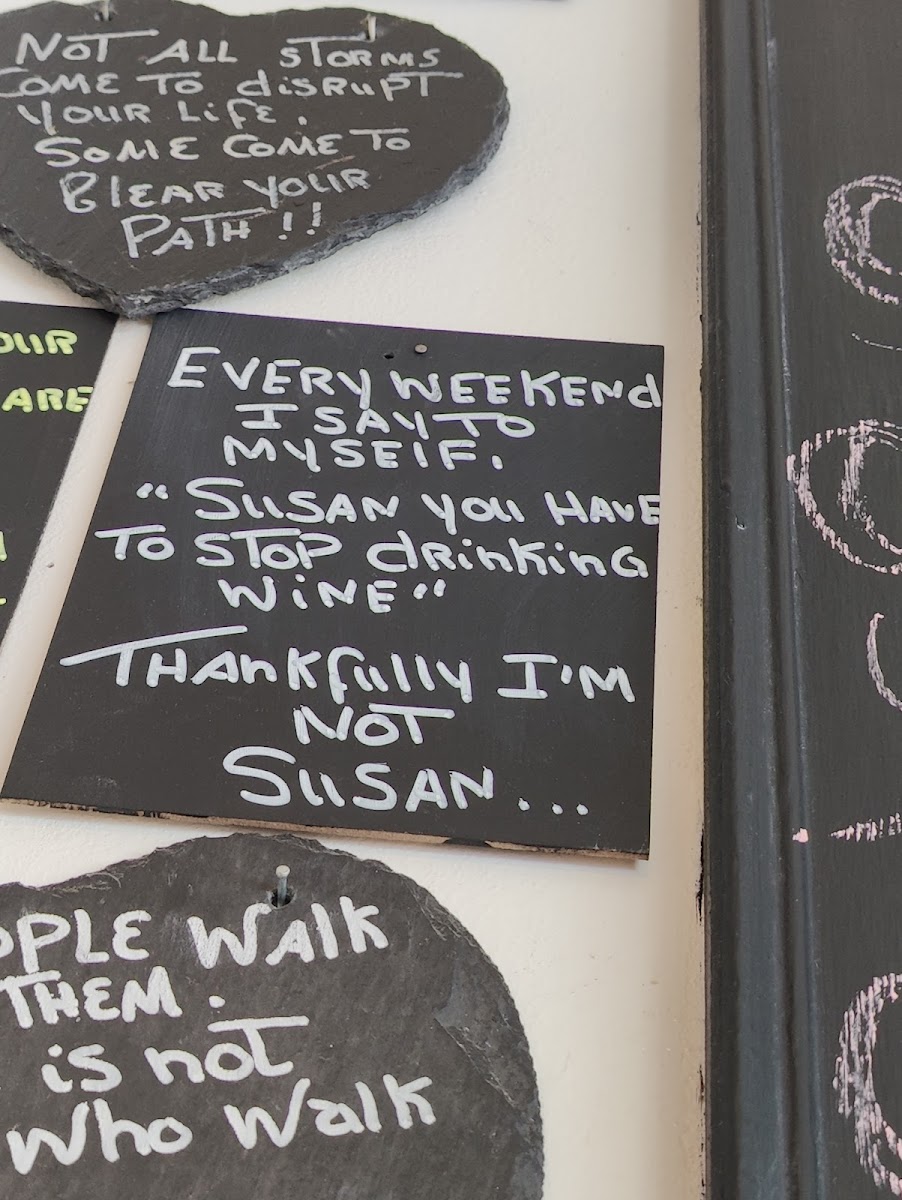 NOT ALL STORMS
COME TO disRUPT
YOUR LIfE.
SOME COME TO
CLEAR YOUR
PATH!!
OUR
ARE
EVERY WEEKENd
I SAY TO
MYSElF.
"SUSAN YOU HAVE
TO STOP dRinKinG
WiNE"
THAnkfully I'M
NOT
SUSAN...
OPLE WAlk
THEM.
is noT
Who Walk